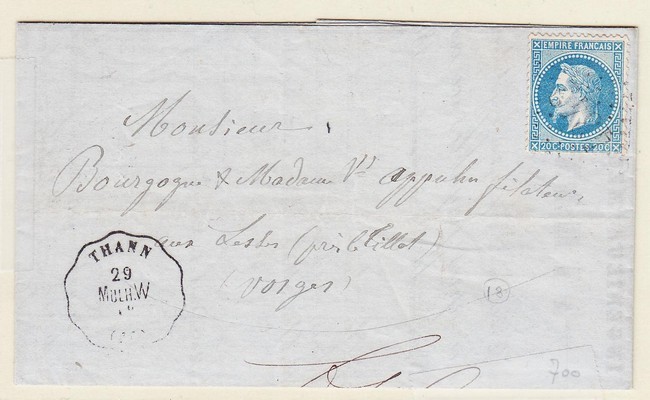 EMPIRE FRANCAIS
20C POSTES 20C
Monsieur
Bourgogne & Madame Vve appuhn filateur
aux Lesses (près le Tillot)
(Vosges)
THANN
29
MULH.W
18
700